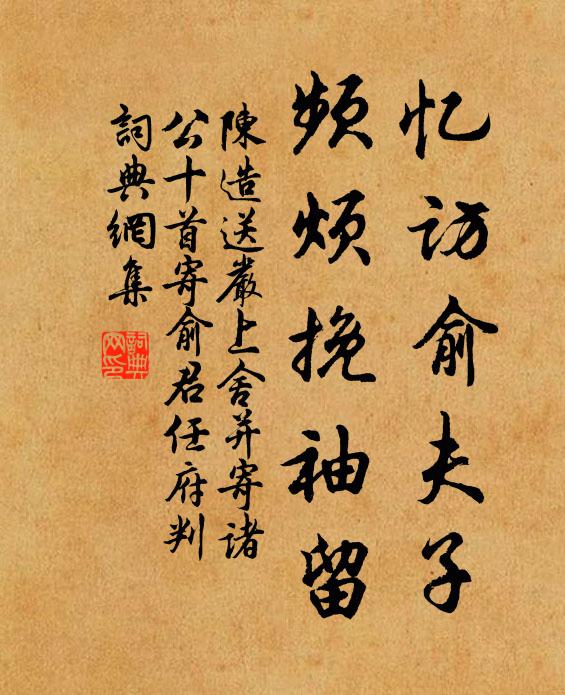 忆访俞夫子
频烦挽袖留
陳造送嚴上舍并寄諸
公十首寄俞君任府判
詞典網集
詞典网印